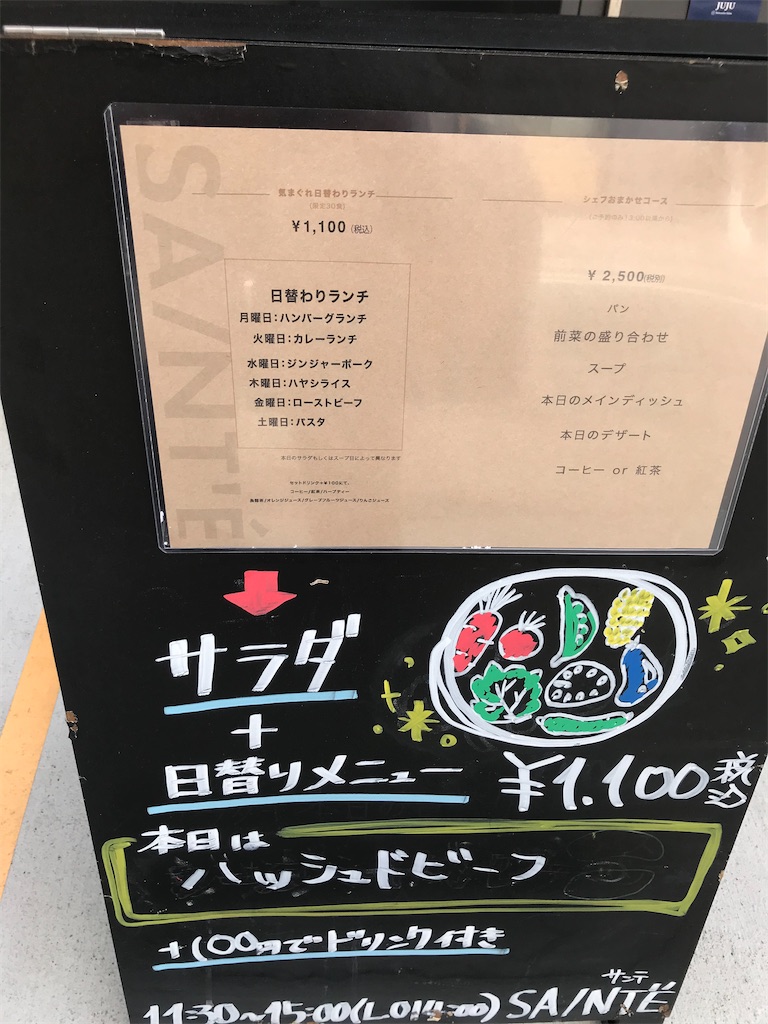 JUJU
SA/NTÉ
気まぐれ日替わりランチ
(限定30食)
¥1,100(税込)
日替わりランチ
月曜日:ハンバーグランチ
火曜日:カレーランチ
水曜日:ジンジャーポーク
木曜日:ハヤシライス
金曜日:ローストビーフ
土曜日:パスタ
本日のサラダもしくはスープ日によって異なります
セットドリンク+¥100にて。
コーヒー/紅茶/ハーブティー
烏龍茶/オレンジジュース/グレープフルーツジュース/りんごジュース
シェフおまかせコース
¥ 2,500(税別)
パン
前菜の盛り合わせ
スープ
本日のメインディッシュ
本日のデザート
コーヒー or 紅茶
サラダ
+
日替りメニュー ¥1.100税込
本日は
ハッシュドビーフ
+100円でドリンク付き
サンテ
11:30~15:00(LO14:00) SA/NTÉ